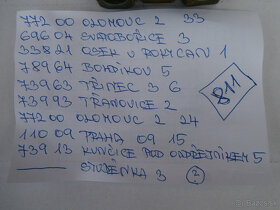 77200 OLOMOUC 2 33
69604 SVATOBOŘICE 3
33821 OSEK U ROKYCAN 1
78964 BOHDÍKOV 5
73963 TŘINEC 3 6
73993 TŘANOVICE 2
77200 OLOMOUC 2 24
11009 PRAHA 09 15
73913 KUNČICE POD ONDŘEJNÍKEM 5
STUDÉNKA 3 ?
811